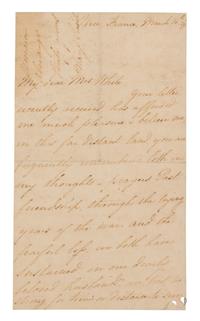 Nice, France, March 16th
My dear Mrs White
Your letter
recently received has afforded
me much pleasure - believe me
in this far distant land you are
frequently remembered both in
my thoughts & prayers Past
friendship, through the trying
years of the war and the
fearful loss we both have
sustained in our dearly
beloved husbands, is too
strong for time or distance to